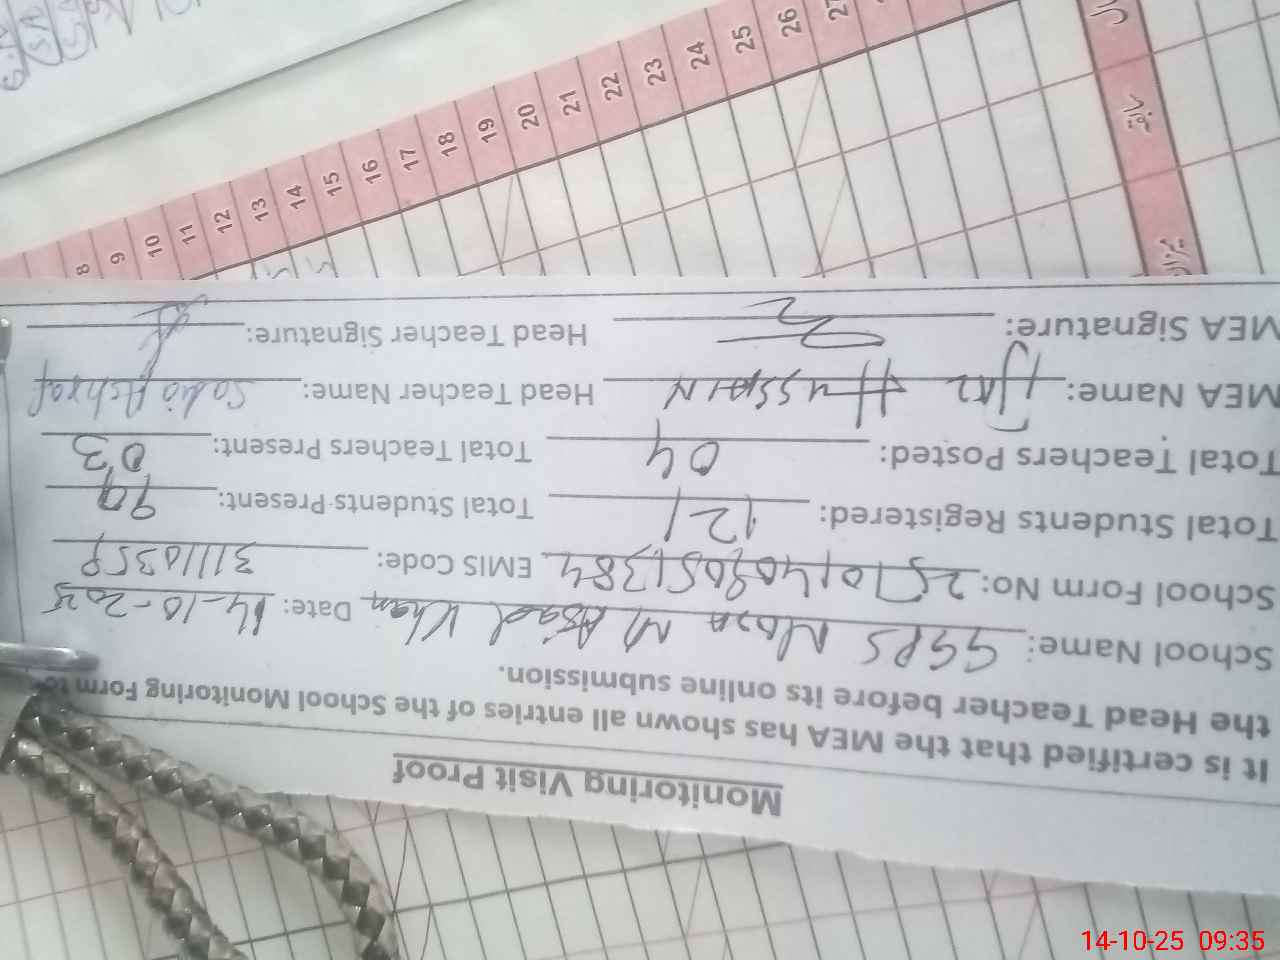 Monitoring Visit Proof
It is certified that the MEA has shown all entries of the School Monitoring Form to
the Head Teacher before its online submission.
School Name: GGPS Khan Date: 14-10-2025
School Form No: EMIS Code:
Total Students Registered: 121 Total Students Present: 99
Total Teachers Posted: 04 Total Teachers Present: 03
MEA Name: HUSSAIN Head Teacher Name: Ashraf
MEA Signature: Head Teacher Signature:
8
9
10
11
12
13
14
15
16
17
18
19
20
21
22
23
24
25
26
27
سابقہ
میزان
14-10-25 09:35